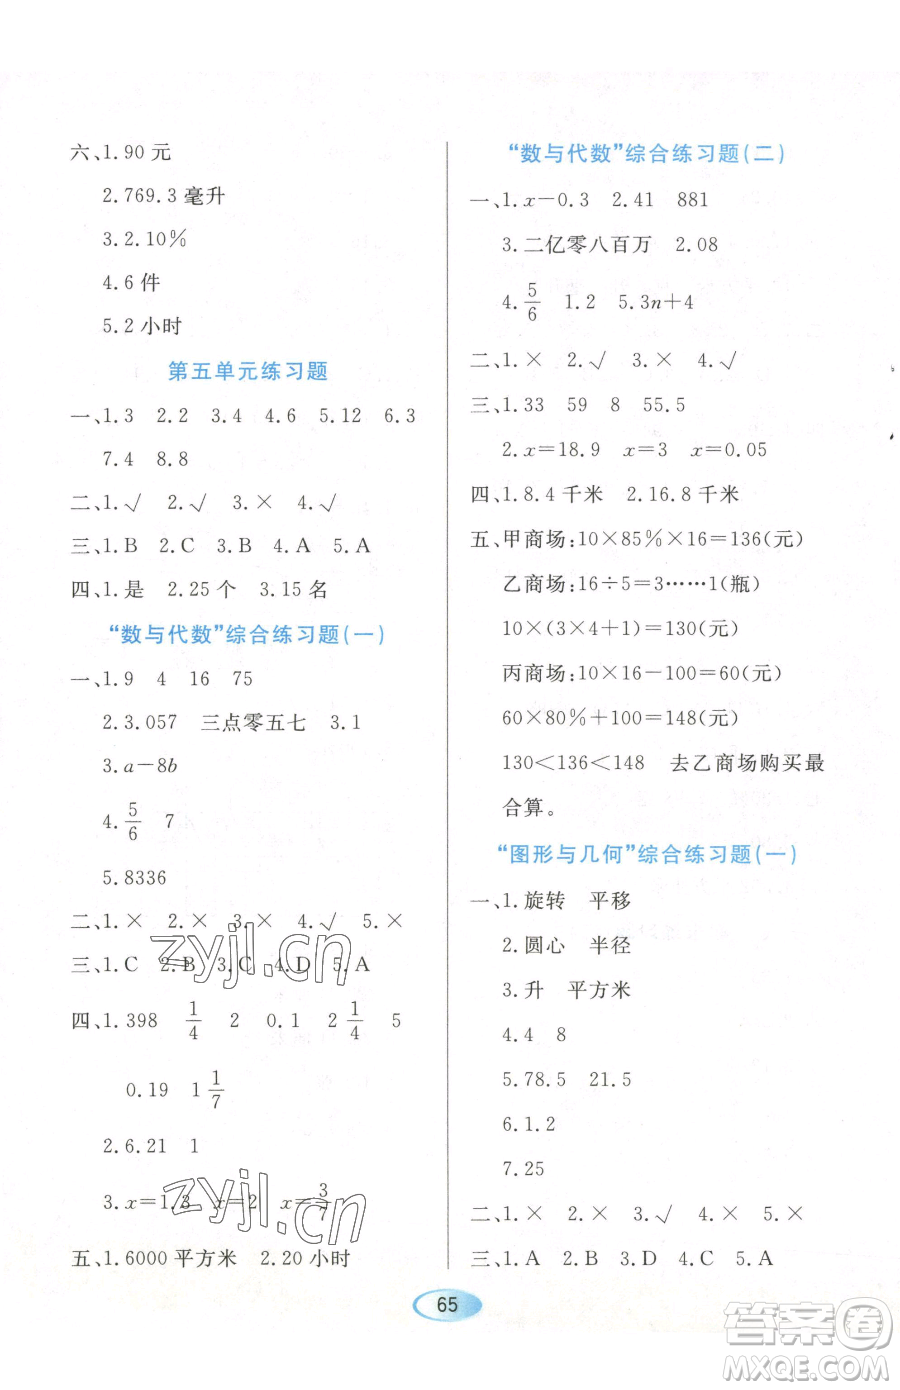 六、1.90 元
2.769.3 毫升
3.2.10%
4.6 件
5.2 小时
第五单元练习题
一、1.3 2.2 3.4 4.6 5.12 6.3
7.4 8.8
二、1.√ 2.√ 3.× 4.√
三、1.B 2.C 3.B 4.A 5.A
四、1.是 2.25 个 3.15 名
“数与代数”综合练习题(一)
一、1.9 4 16 75
2.3.057 三点零五七 3.1
3.a-8b
4.5/6 7
5.8336
二、1.× 2.× 3.× 4.√ 5.×
三、1.C 2.B 3.C 4.D 5.A
四、1.398 1/4 2 0.1 2 1/4 5
0.19 1 1/7
2.6.21 1
3.x=1.3 x=2 x=3/7
五、1.6000 平方米 2.20 小时
“数与代数”综合练习题(二)
一、1.x-0.3 2.41 881
3.二亿零八百万 2.08
4.5/6 1.2 5.3n+4
二、1.× 2.√ 3.× 4.√
三、1.33 59 8 55.5
2.x=18.9 x=3 x=0.05
四、1.8.4 千米 2.16.8 千米
五、甲商场:10×85%×16=136(元)
乙商场:16÷5=3……1(瓶)
10×(3×4+1)=130(元)
丙商场:10×16-100=60(元)
60×80%+100=148(元)
130<136<148 去乙商场购买最
合算。
“图形与几何”综合练习题(一)
一、1.旋转 平移
2.圆心 半径
3.升 平方米
4.4 8
5.78.5 21.5
6.1.2
7.25
二、1.× 2.× 3.√ 4.× 5.×
三、1.A 2.B 3.D 4.C 5.A
65
zyjl.cn
zyjl.cn
答案圈
MXQE.COM